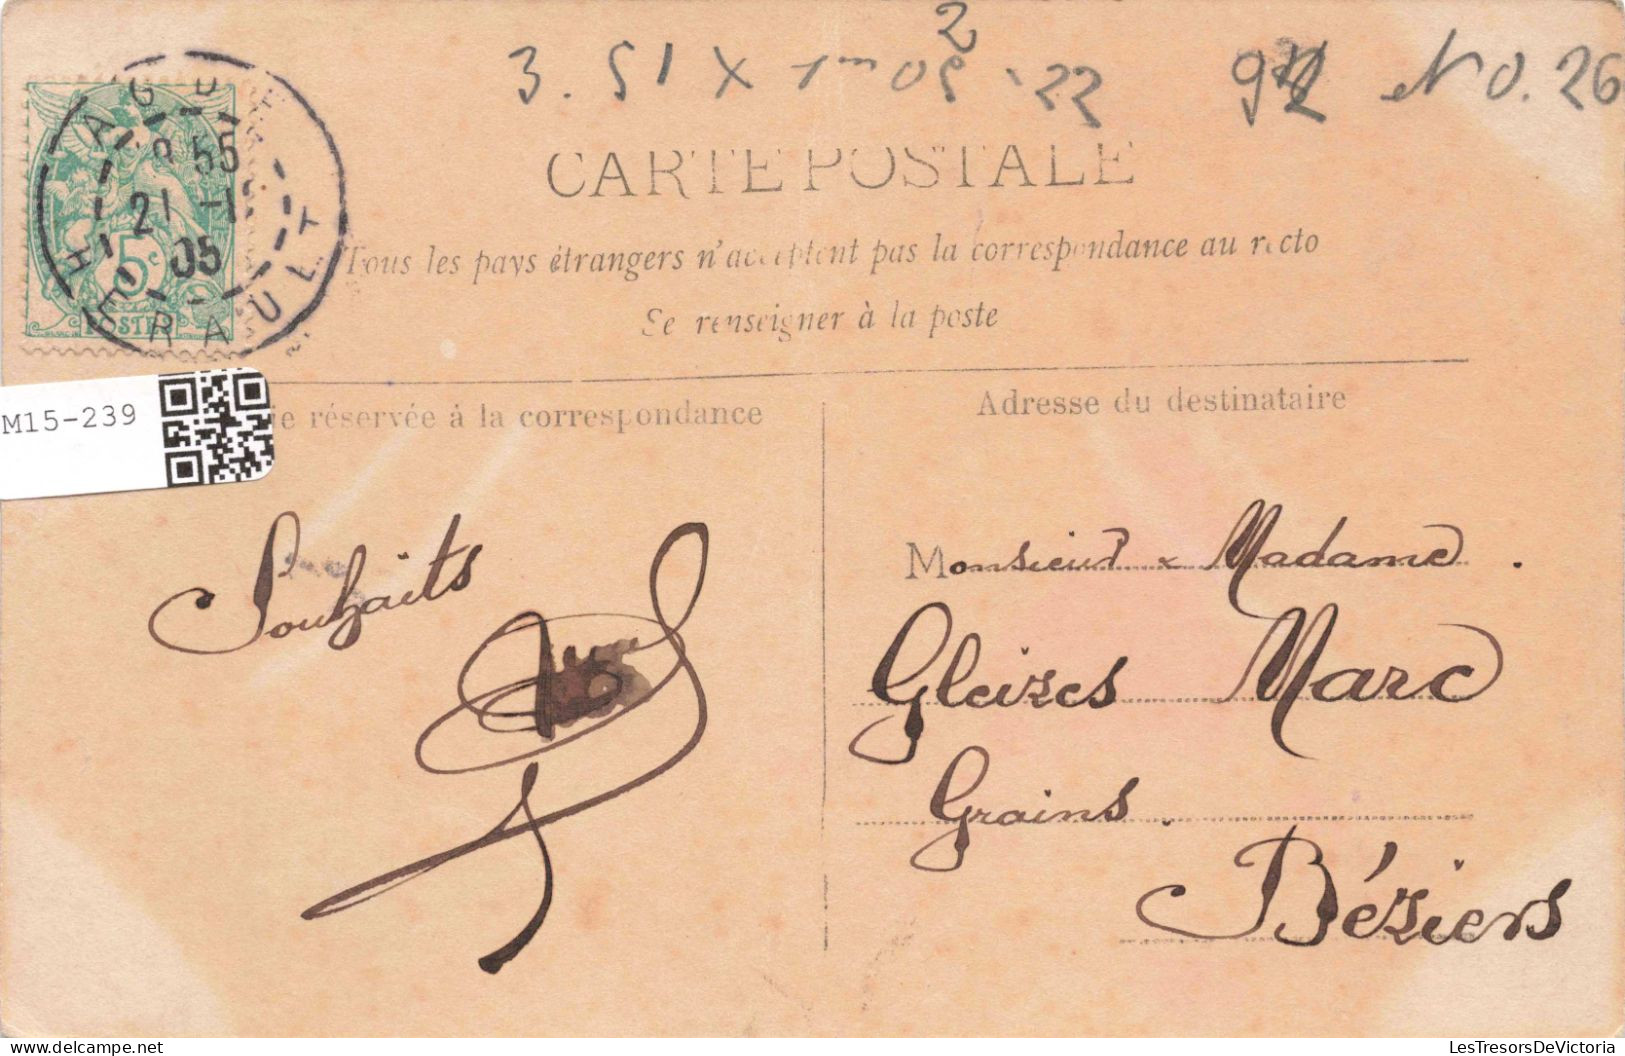 3.51 X 1m05 2 .22 92 N 0.26
AGDE
55
21 -1
05
HERAULT
5c
POSTES
CARTE POSTALE
Tous les pays étrangers n'acceptent pas la correspondance au recto
Se renseigner à la poste
M15-239
ie réservée à la correspondance
Adresse du destinataire
Souhaits
Monsieur & Madame .
Gleizes Marc
Grains.
Béziers
LesTresorsDeVictoria